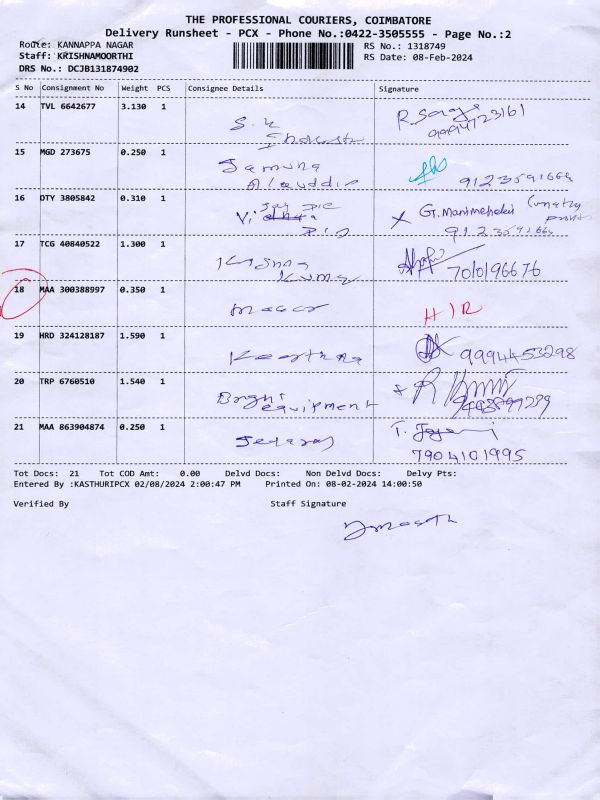 THE PROFESSIONAL COURIERS, COIMBATORE
Delivery Runsheet - PCX - Phone No.:0422-3505555 - Page No.:2
Route: KANNAPPA NAGAR
RS No.: 1318749
Staff: KRISHNAMOORTHI
RS Date: 08-Feb-2024
DRS No.: DCJB131874902
S No Consignment No Weight PCS Consignee Details Signature
14 TVL 6642677 3.130 1 S.K
9994723161
15 MGD 273675 0.250 1 Jamuna
Alauddin 9123591664
16 DTY 3805842 0.310 1 Jay Die
X G. Manimehalai
17 TCG 40840522 1.300 1 Krishna
Kumar 7010196676
18 MAA 300388997 0.350 1 H I R
19 HRD 324128187 1.590 1 Keerthna 9994453298
20 TRP 6760510 1.540 1 Bright
equipment
21 MAA 863904874 0.250 1 Jedaraj T.
7904101995
Tot Docs: 21 Tot COD Amt: 0.00 Delvd Docs: Non Delvd Docs: Delvy Pts:
Entered By :KASTHURIPCX 02/08/2024 2:00:47 PM Printed On: 08-02-2024 14:00:50
Verified By Staff Signature